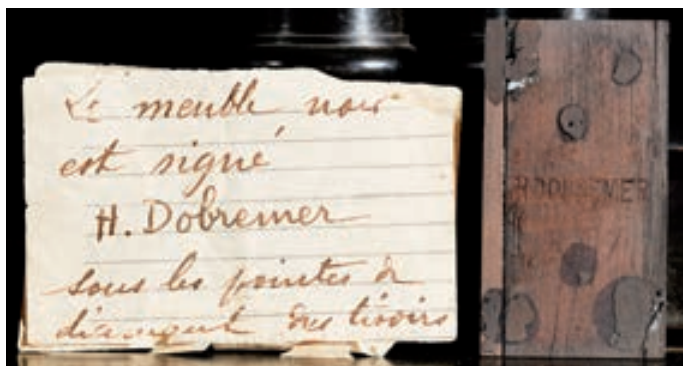 Le meuble noir
est signé
H. Dobremer
sous les pointes de
diamant des tiroirs
H DOBREMER